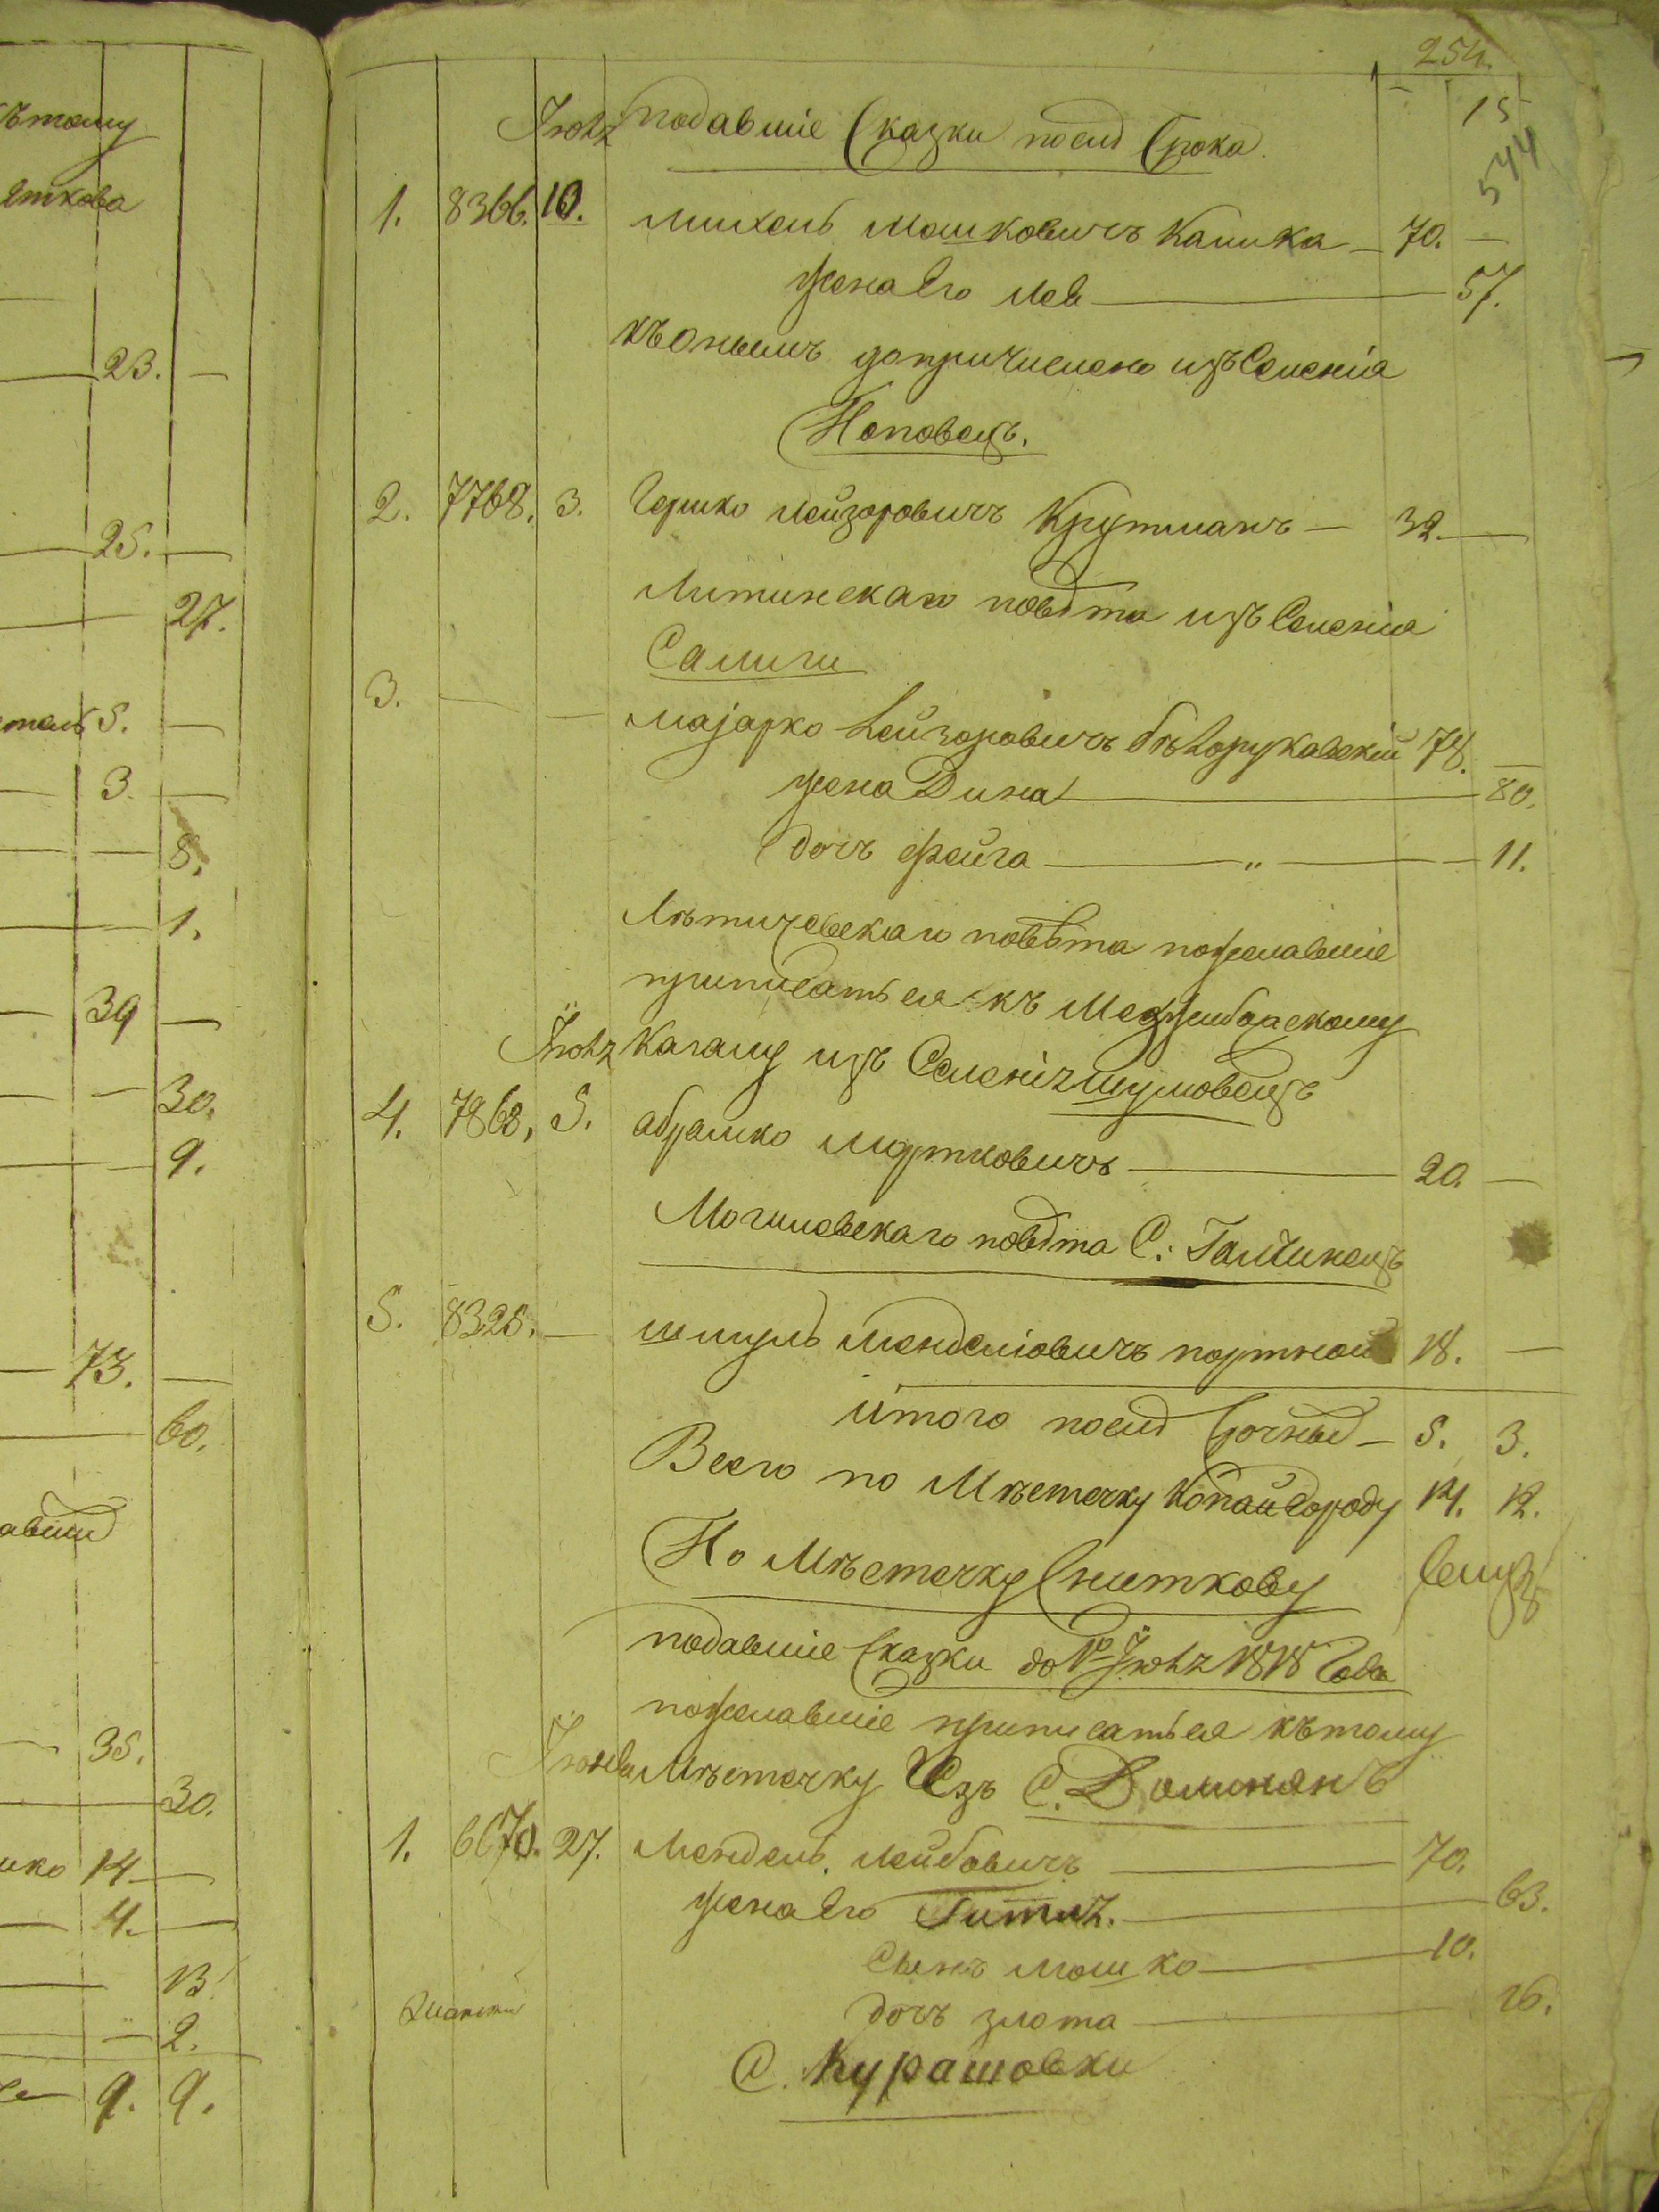 ѣтому
иткова
23. —
25. —
27.
5. —
3. —
8.
1.
39 —
30.
9.
73. —
60.
35.
30.
14 —
4. —
13.
2.
9. 9.
254.
15
544
подавшіе Сказки послѣ Срока
1. 8366. 10. Михель Мошковичъ Капика — 70. —
жена Его Лея — 57.
къ онымъ допричислено изъ Селенія
Поповецъ.
2. 7768. 3. Гершко Лейзоровичъ Крутманъ — 32. —
Литинскаго повѣта изъ Селенія
Салиги
3. — — Маіорко Лейзоровичъ Бѣлорукавскій 78. —
жена Дина — 80.
дочь Фейга — 11.
Лѣтичевскаго повѣта пожелавшіе
приписаться къ Меджибожскому
Кагалу изъ Селенія Шумовецъ
4. 7868. 5. Абрамко Мортковичъ — 20. —
Могилевскаго повѣта С: Галчинецъ
5. 8325. — Шмуль Менделіовичъ портной 18. —
итого послѣ Срочныхъ — 5. 3.
Всего по Мѣстечку Копайгороду 14. 12.
По Мѣстечку Сниткову
подавшіе Сказки до 1го 1818 Года
пожелавшіе приписаться къ тому
Мѣстечку Изъ С. Долинянъ
1. 6670. 27. Мендель Лейбовичъ — 70.
жена Его Гитля. — 63.
Сынъ Мошко — 10.
дочь Злота — 26.
С. Курашовки